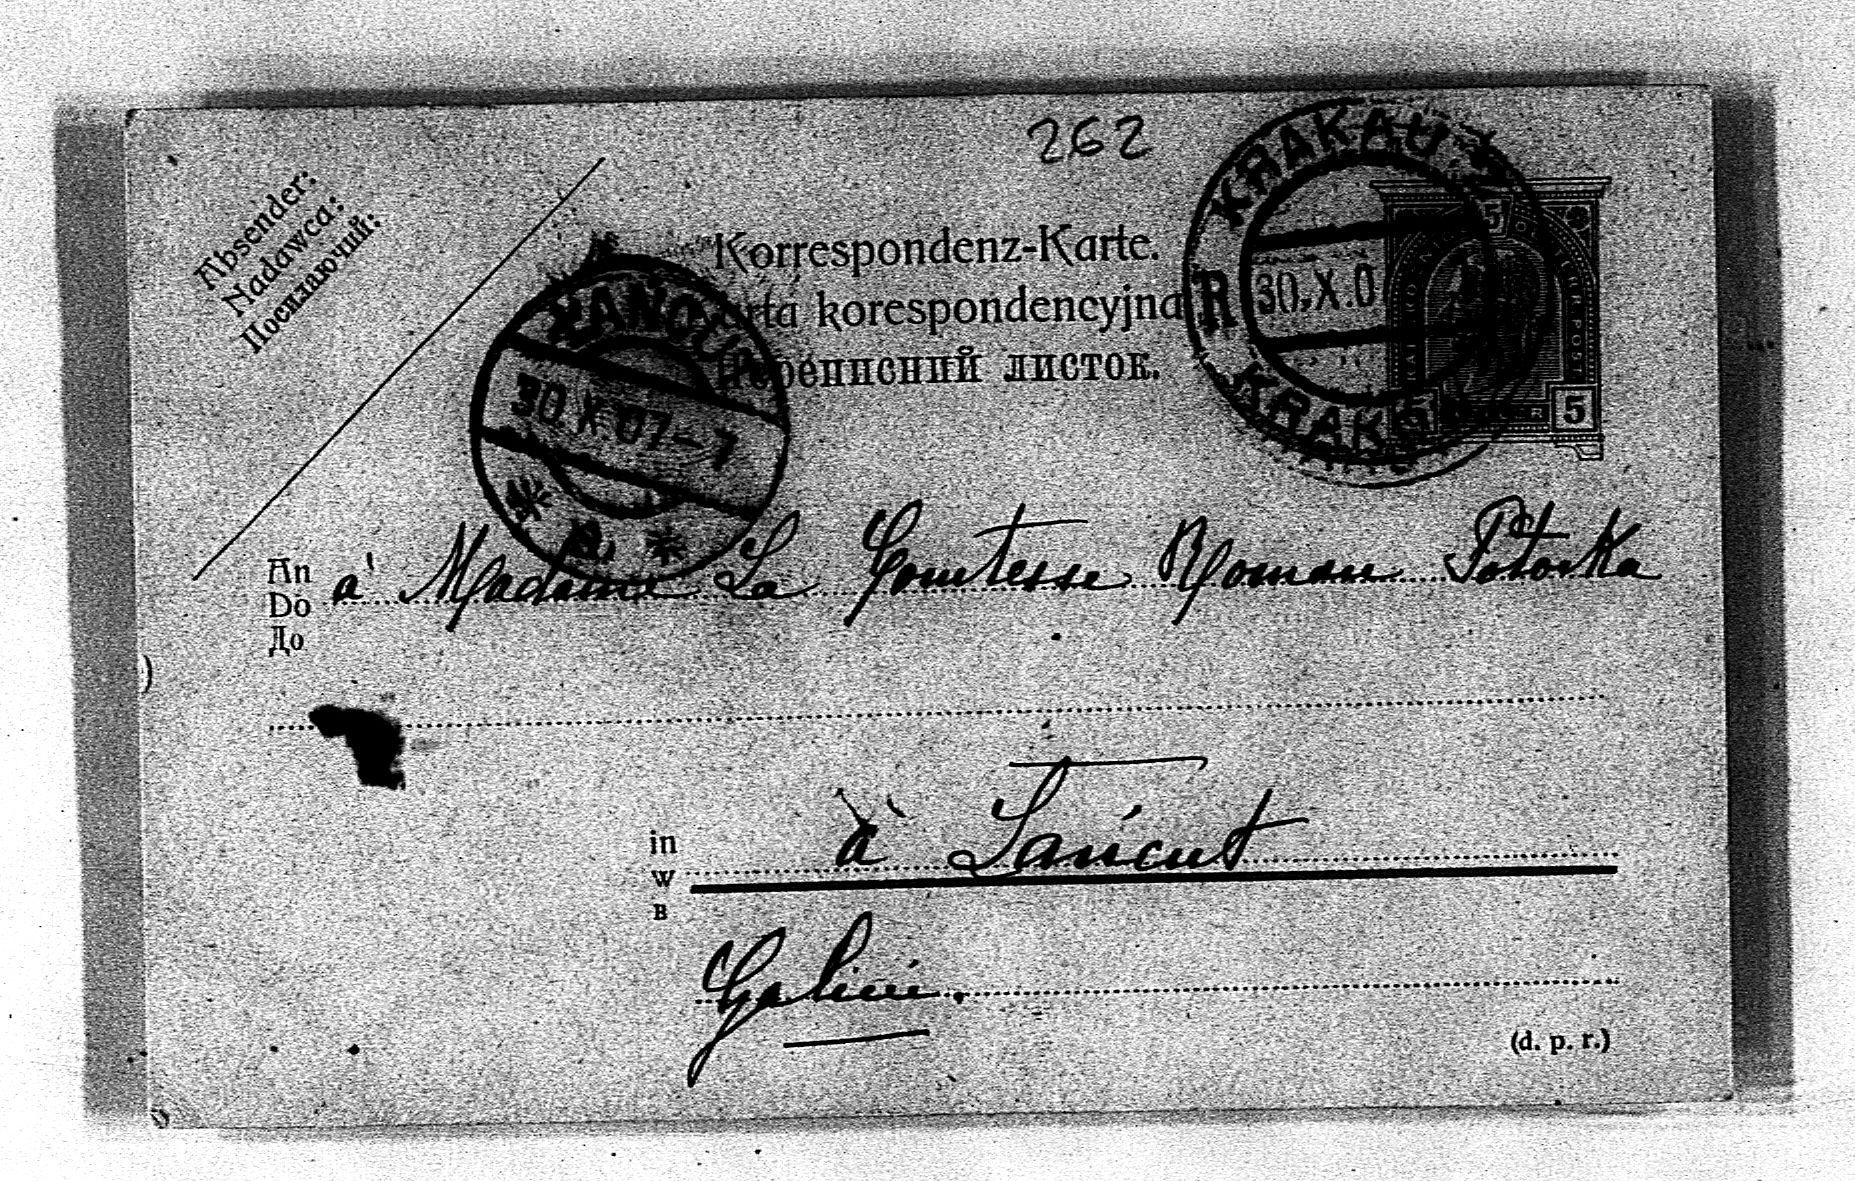 262
Absender:
Nadawca:
Посилаючий:
Korrespondenz-Karte.
korespondencyjna
Переписний листок.
KRAKAU
R 30.X.0
KRAK
5
5
30.X.07-7
An
Do
До
à Madame La Comtesse Roman Potocka
in
w
в
à Łańcut
Galicie.
(d. p. r.)